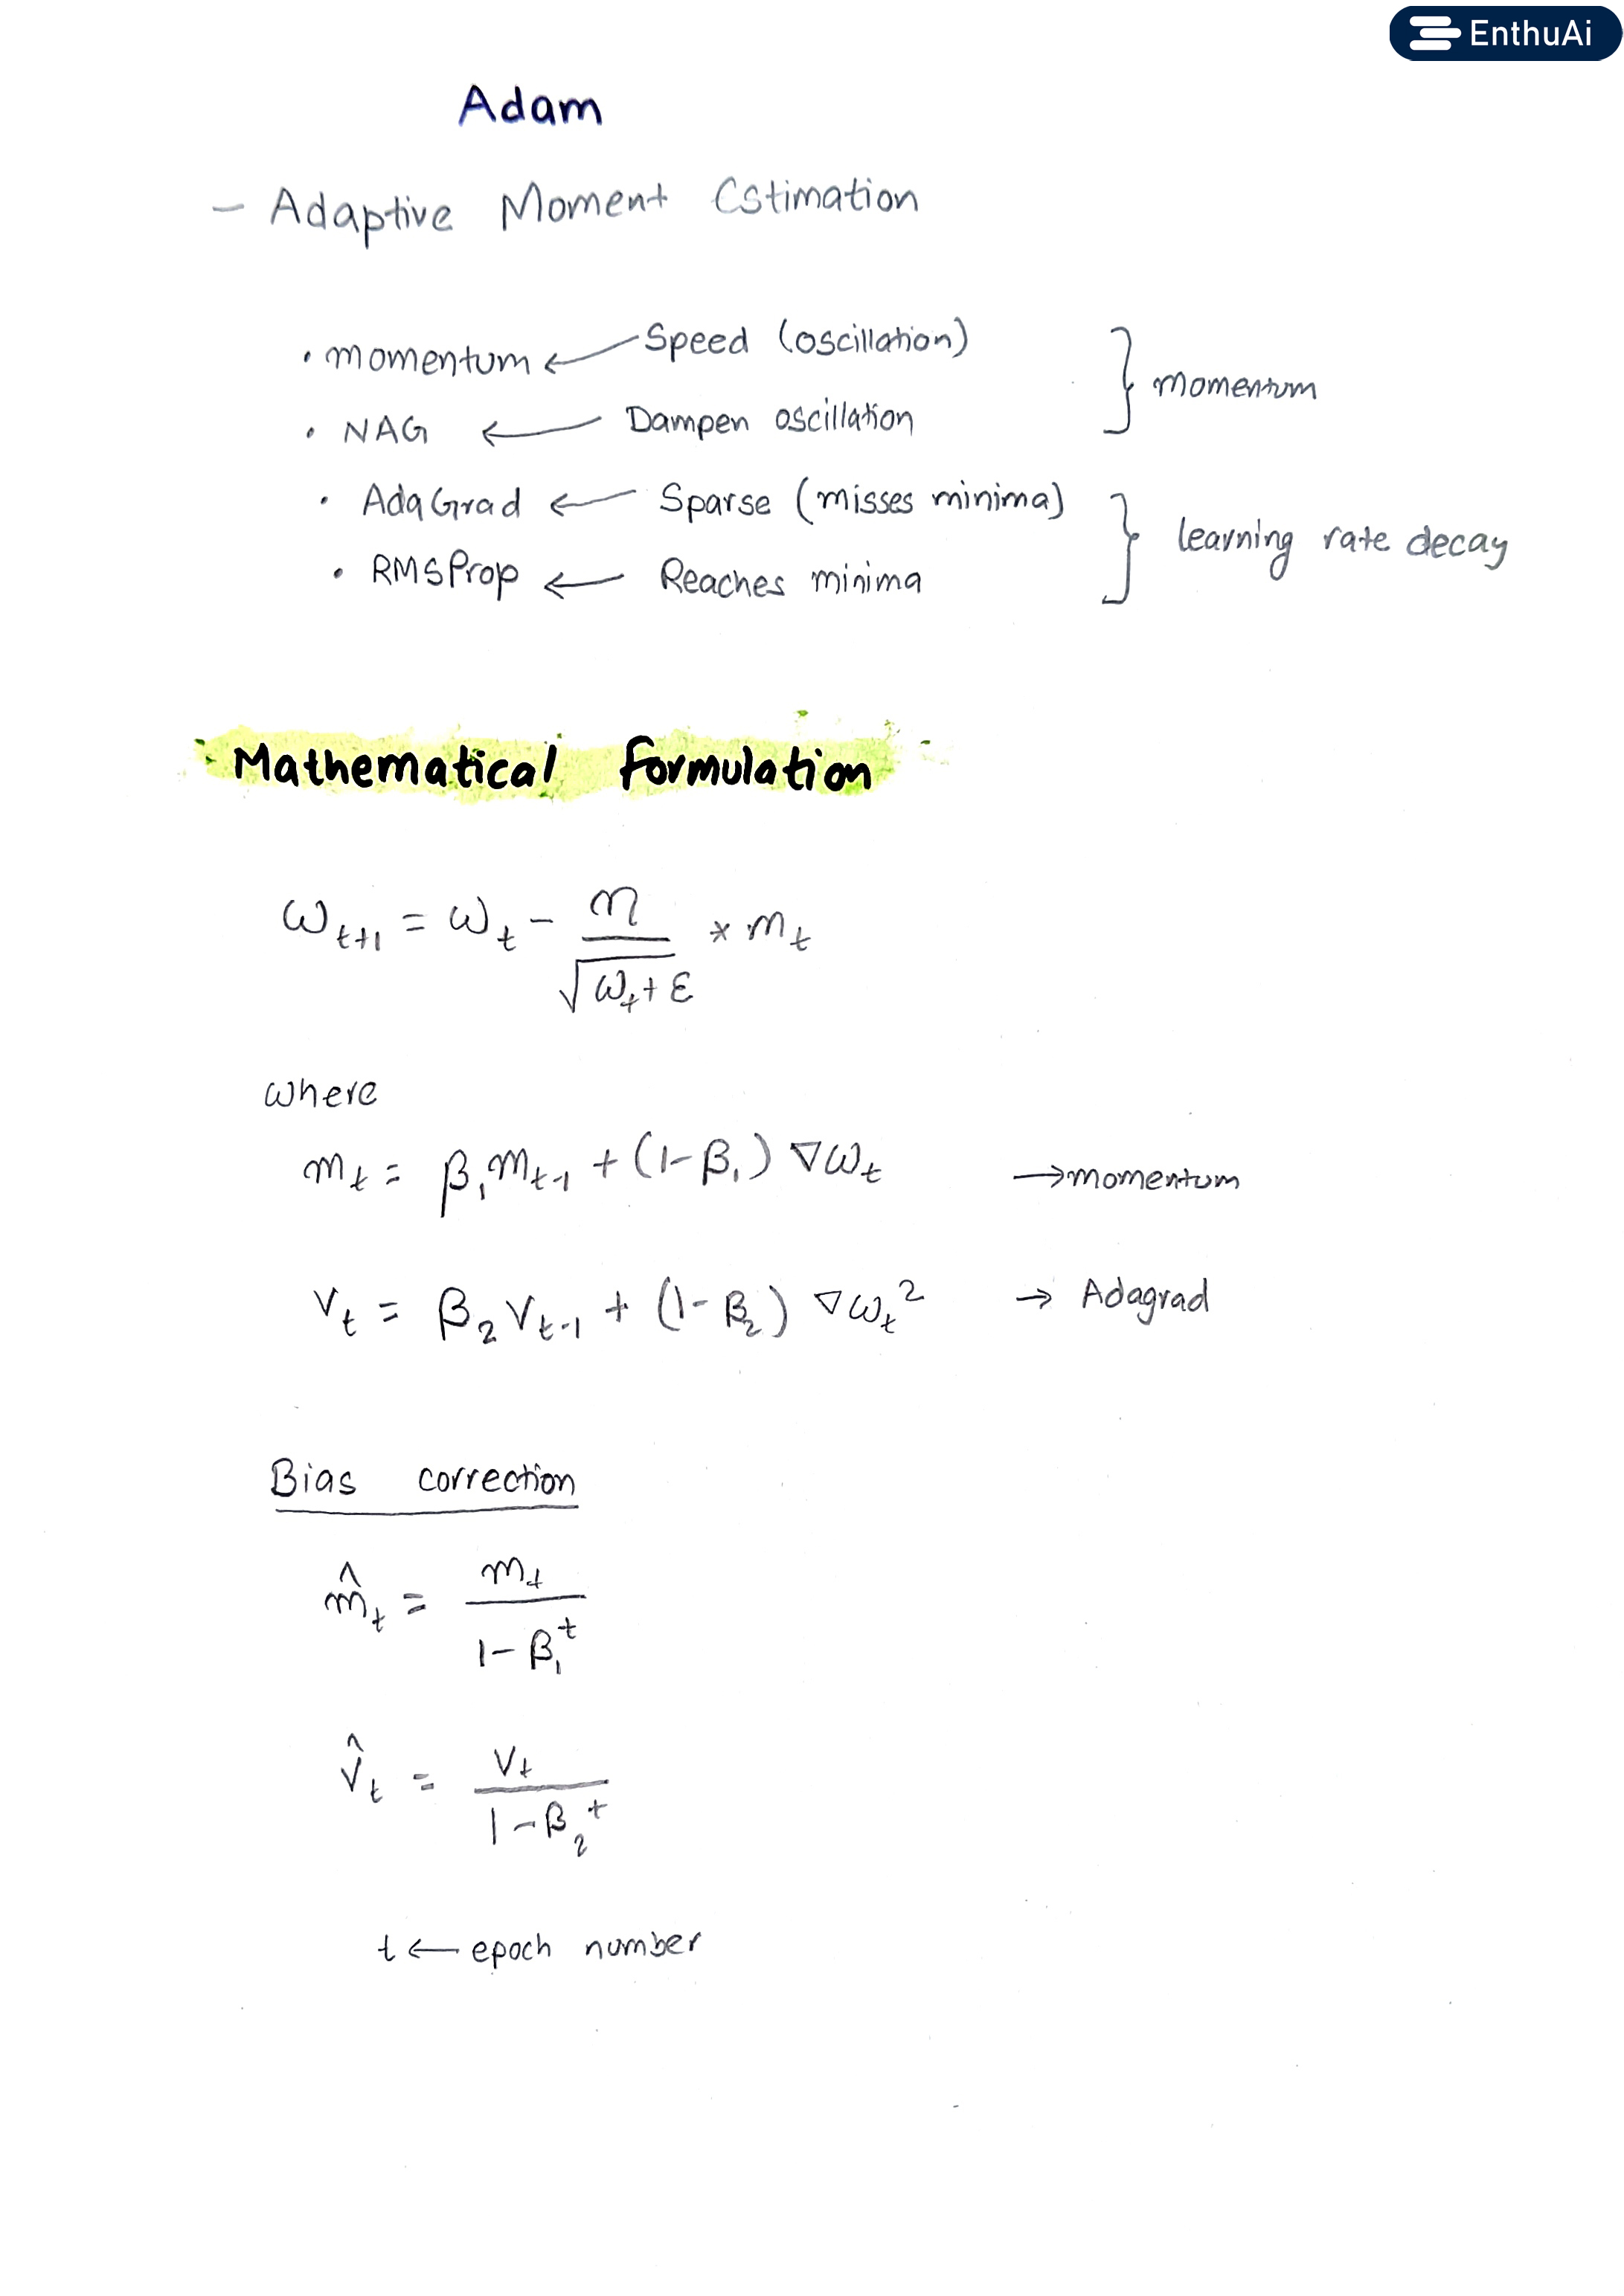 EnthuAi
Adam
- Adaptive Moment Estimation
• momentum ← Speed (oscillation)
• NAG ← Dampen oscillation
} momentum
• AdaGrad ← Sparse (misses minima)
• RMSProp ← Reaches minima
} learning rate decay
Mathematical formulation
ω_{t+1} = ω_t - η / √(ω_t + ε) * m_t
where
m_t = β_1 m_{t-1} + (1-β_1) ∇ω_t → momentum
V_t = β_2 V_{t-1} + (1-β_2) ∇ω_t² → Adagrad
Bias correction
m̂_t = m_t / (1-β_1^t)
V̂_t = V_t / (1-β_2^t)
t ← epoch number